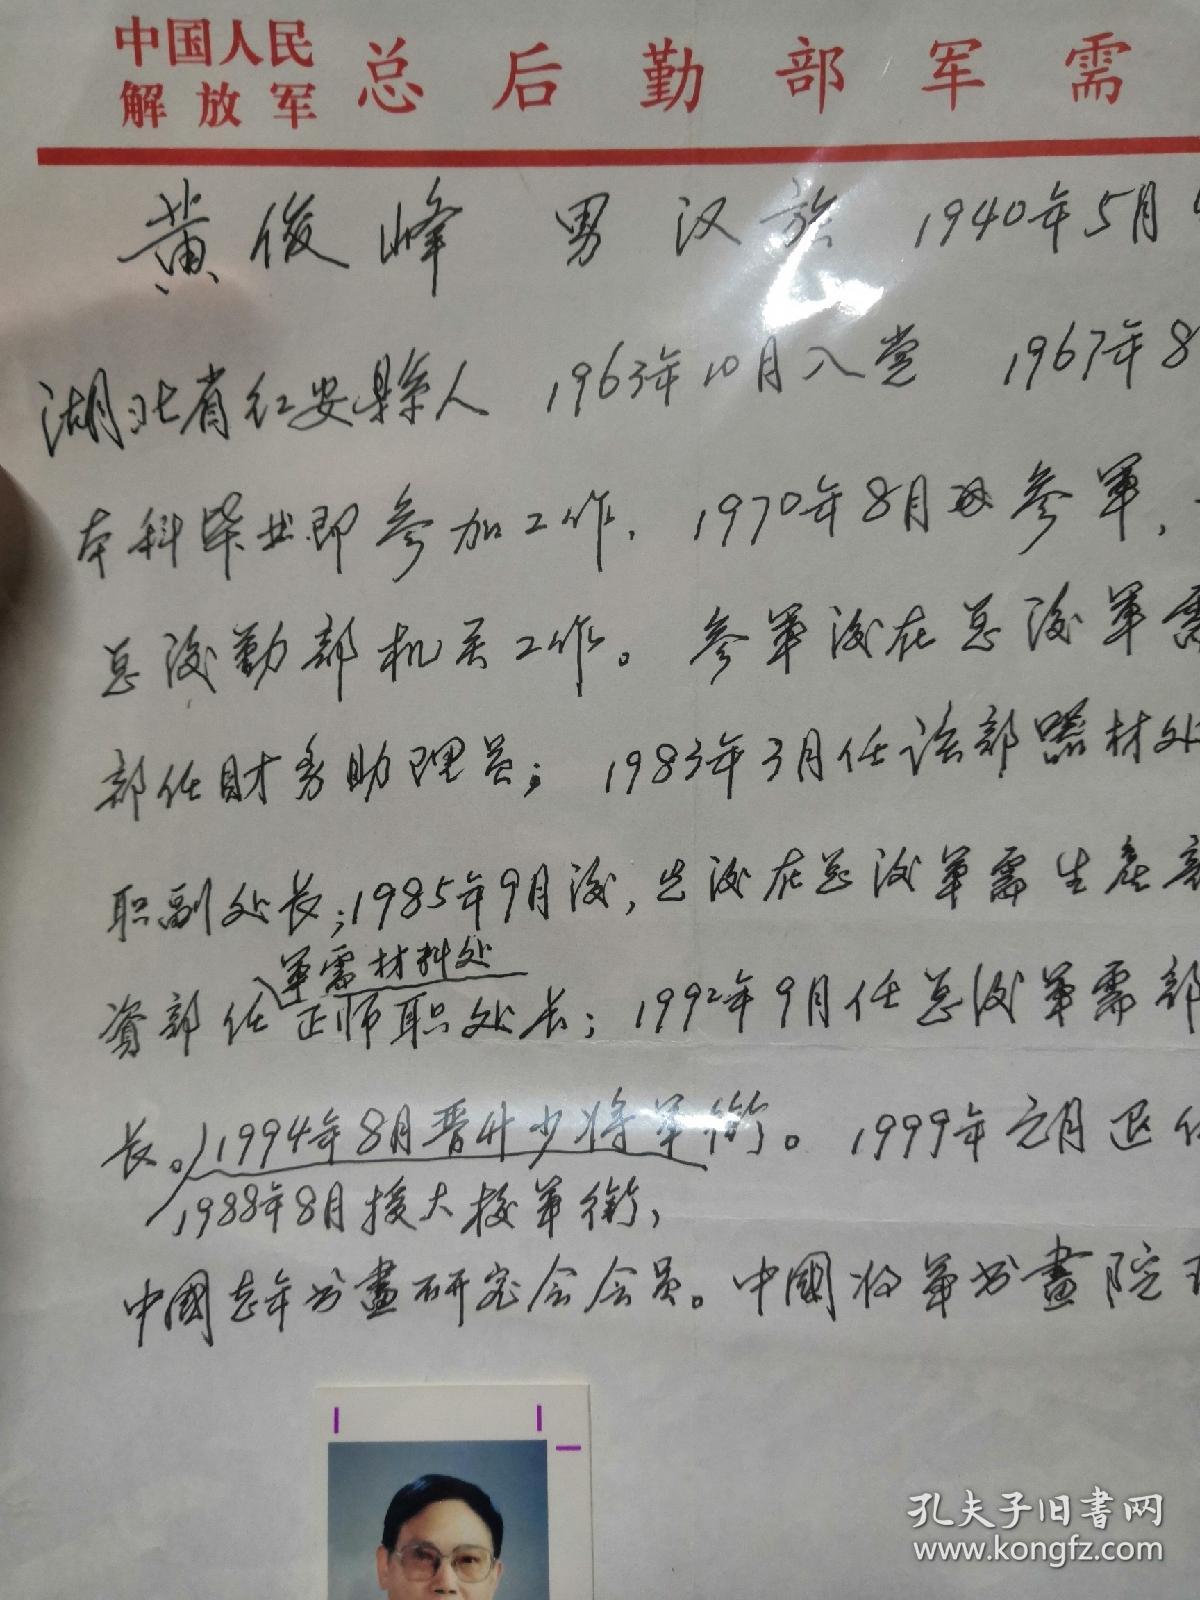 中国人民
解放军 总后勤部军需
黄俊峰 男 汉族 1940年5月
湖北省红安縣人 1963年10月入党 1967年8
本科毕业即参加工作，1970年8月参军，
总後勤部机关工作。参军後在总後军需
部任财务助理员；1983年3月任该部器材处
职副处长；1985年9月後，先後在总後军需生产部
军需材料处
资部任正师职处长；1992年9月任总後军需部
长。1994年8月晋升少将军衔。1999年元月退休
1988年8月授大校军衔，
中國老年书畫研究会会员。中國将军书畫院
孔夫子旧書网
www.kongfz.com